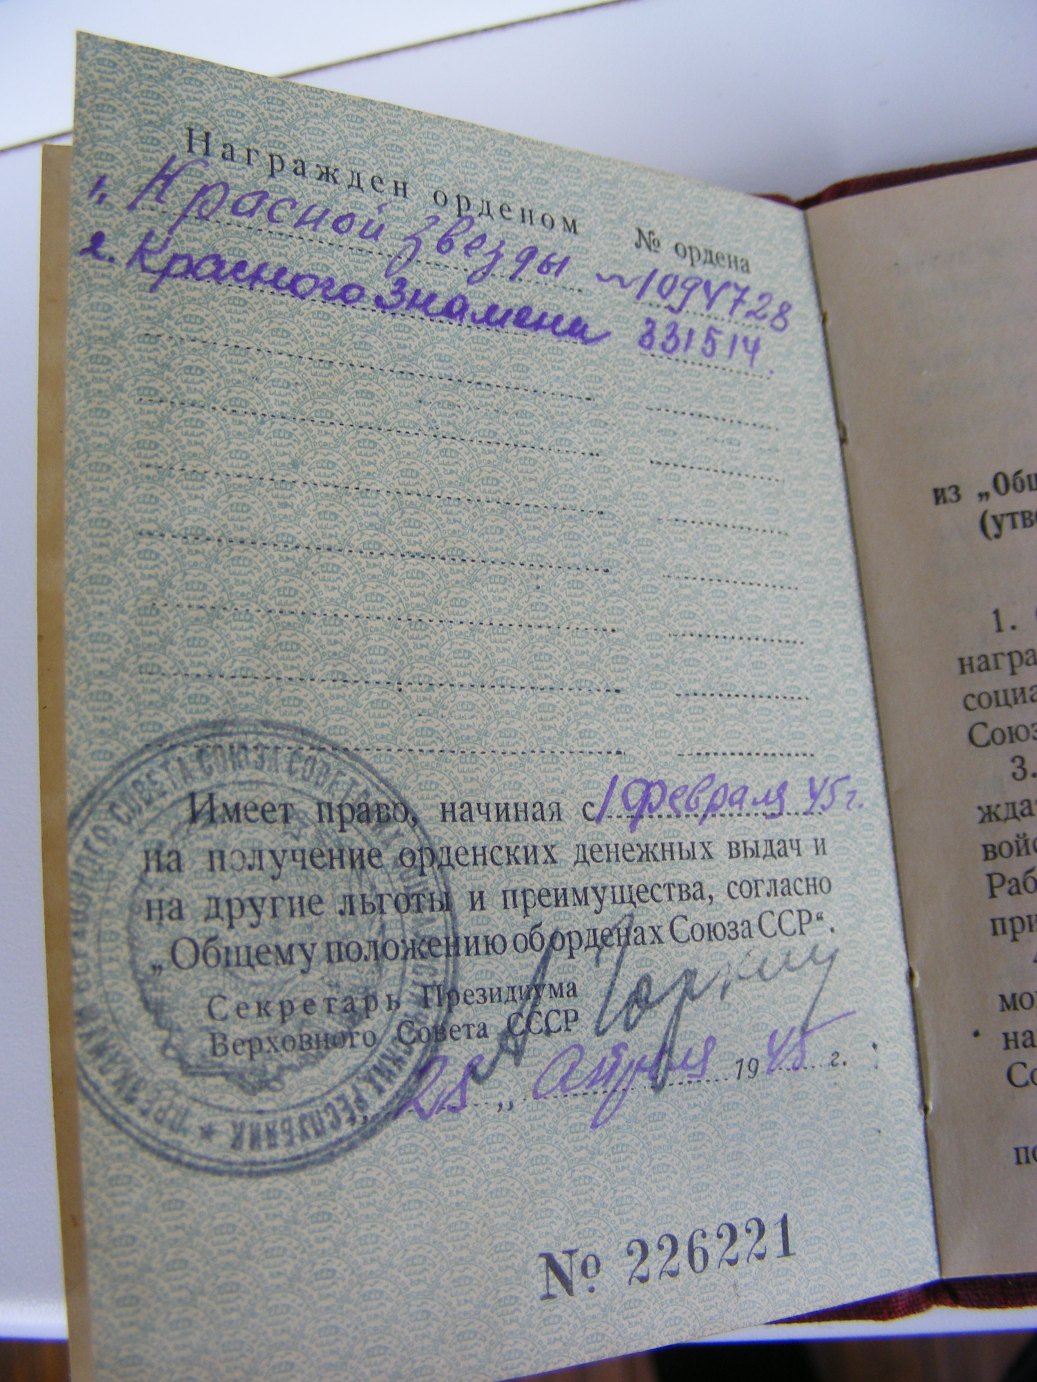 Награжден орденом № ордена
1. Красной звезды № 1094728
2. Красного Знамени 331514.
Имеет право, начиная с 1 февраля 45 г.
на получение орденских денежных выдач и
на другие льготы и преимущества, согласно
„Общему положению об орденах Союза ССР“.
Секретарь Президиума
Верховного Совета СССР
28 „ апреля 1945 г.
№ 226221
ПРЕЗИДИУМ ВЕРХОВНОГО СОВЕТА СОЮЗА СОВЕТСКИХ РЕСПУБЛИК
из „Общ
(утве
1.
награ
социа
Союз
3.
ждат
войс
Раб
при
мо
на
Со
по